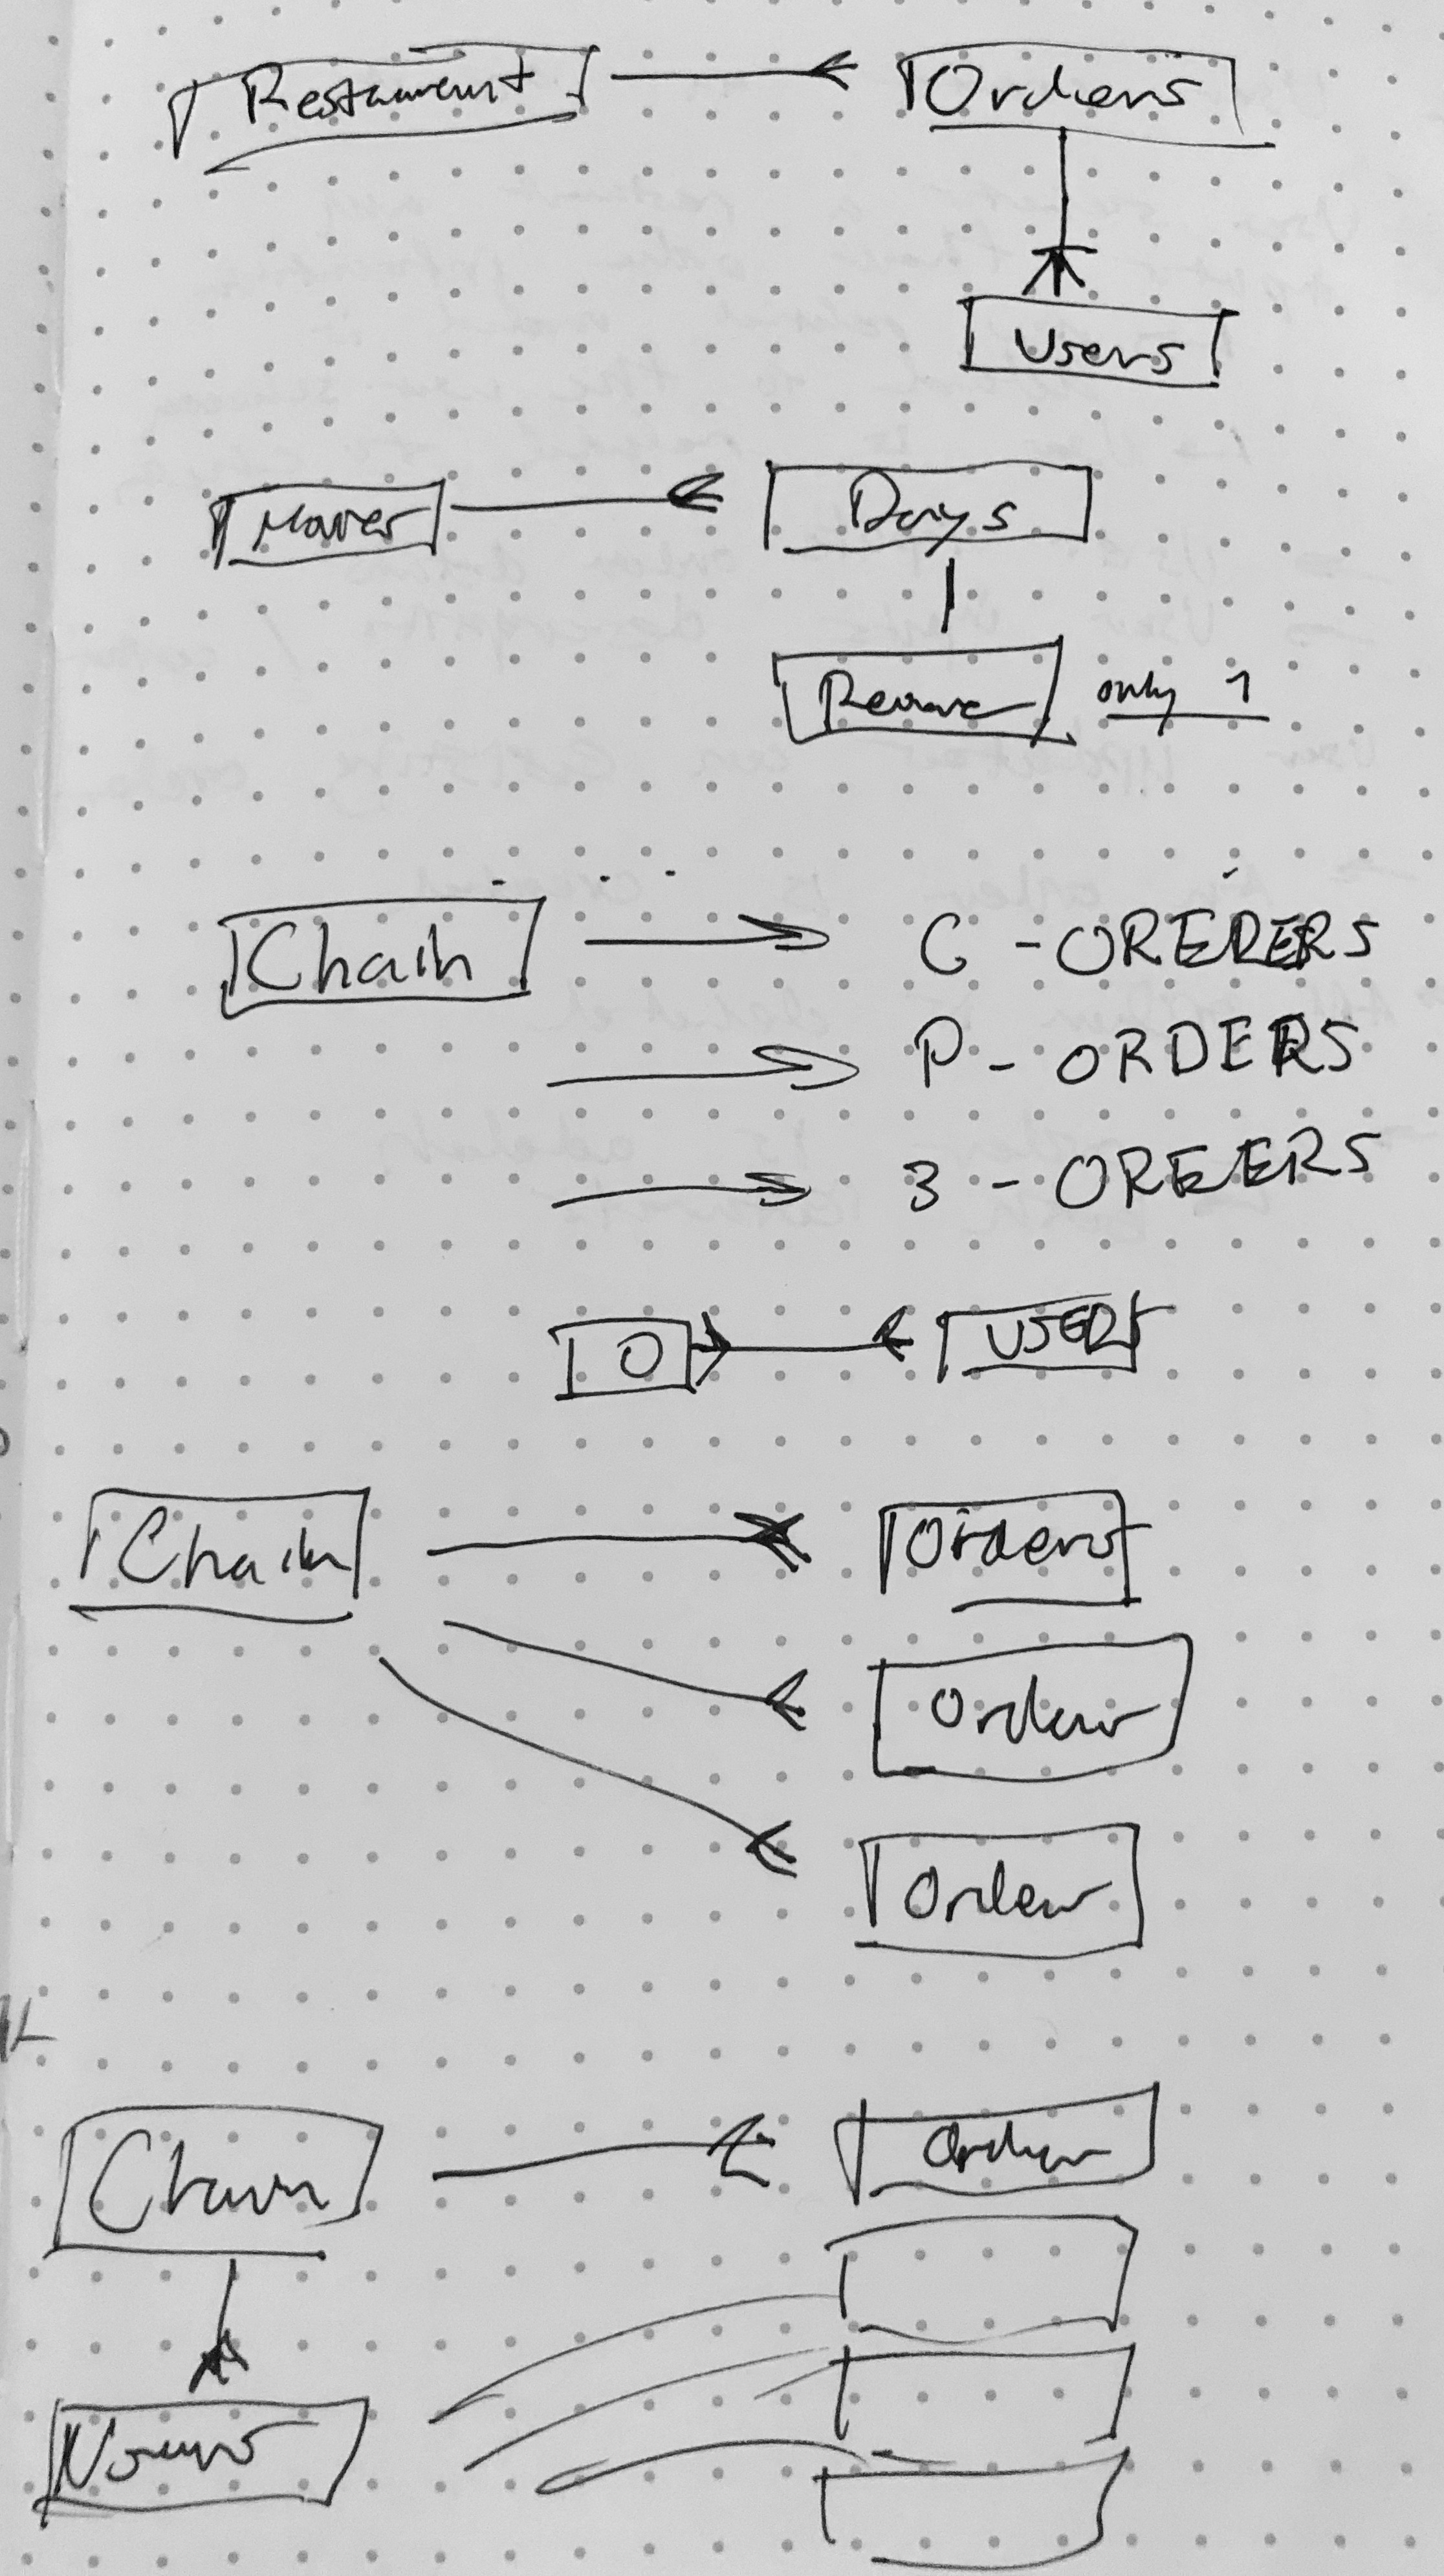 Restaurent Orders
Users
Days
only 1
Chain C - OREDERS
P - ORDERS
3 - OREERS
O USER
Chain Orders
Order
Order
Chain Order
Users